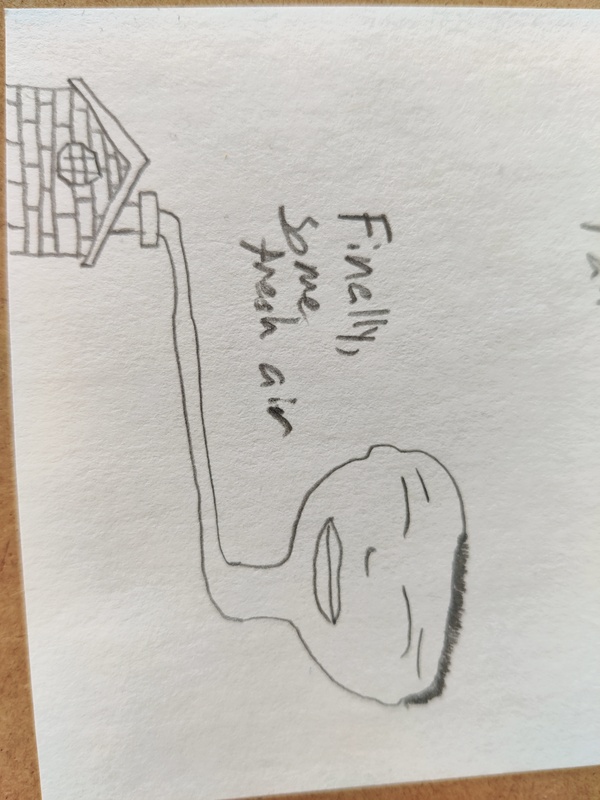 Finally,
some
fresh air